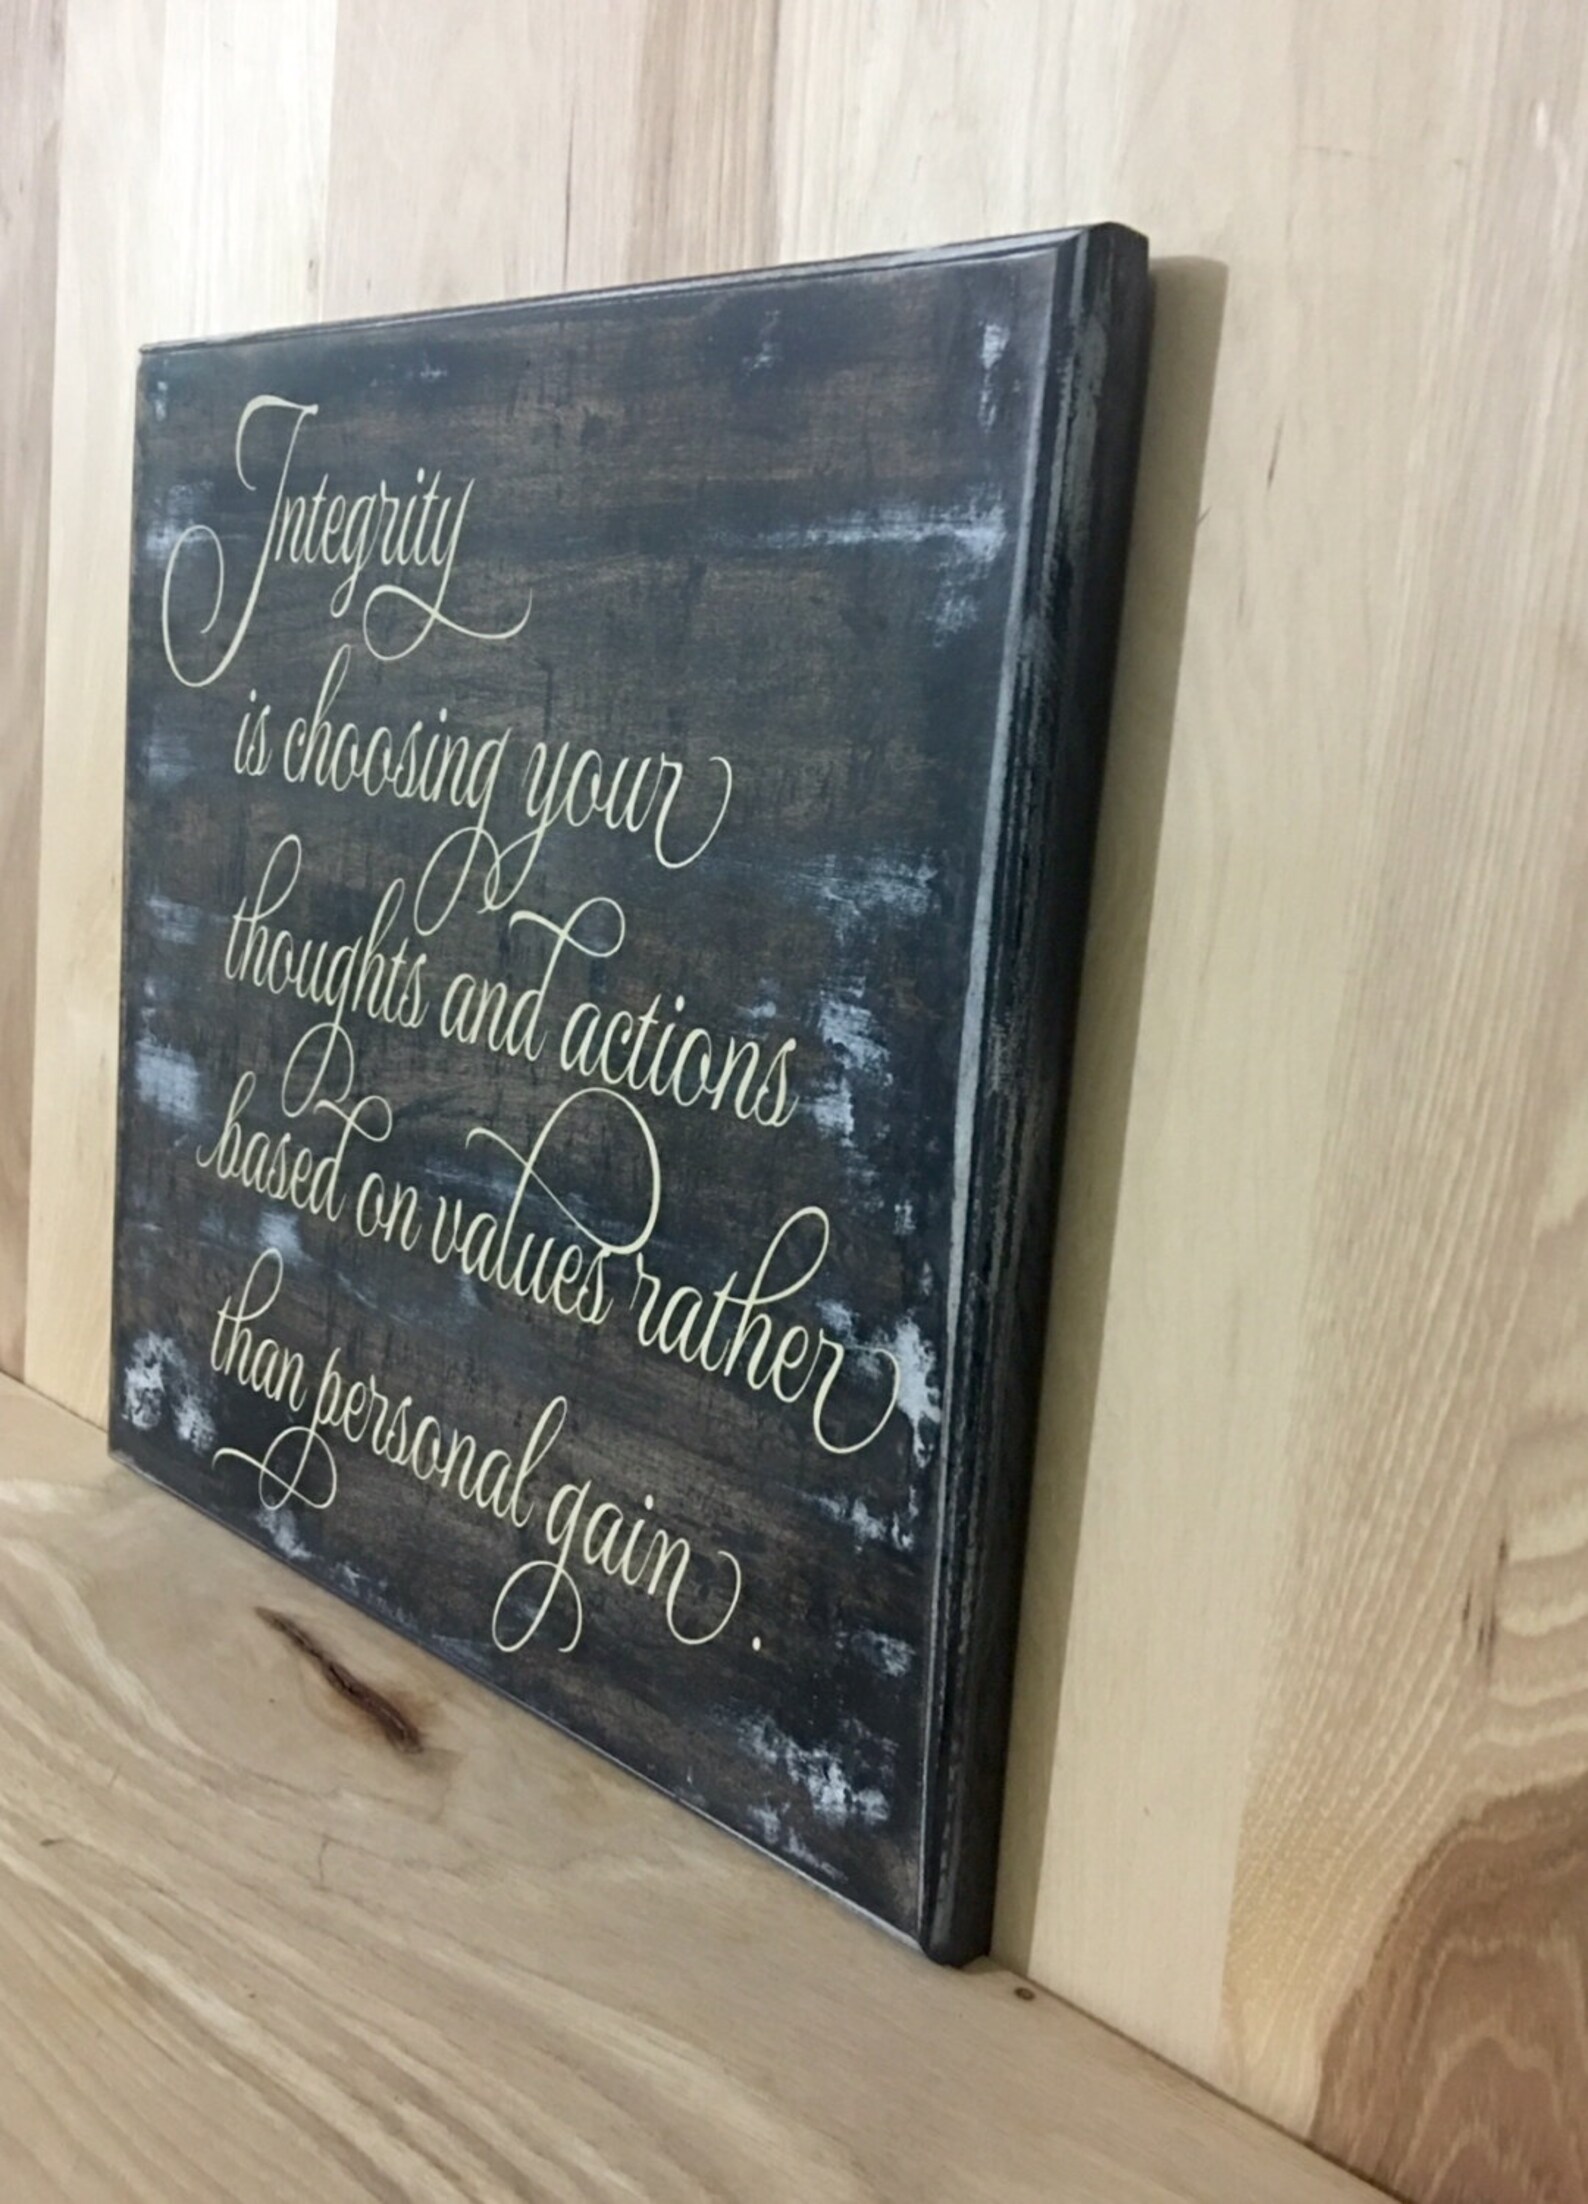 Integrity
is choosing your
thoughts and actions
based on values rather
than personal gain.